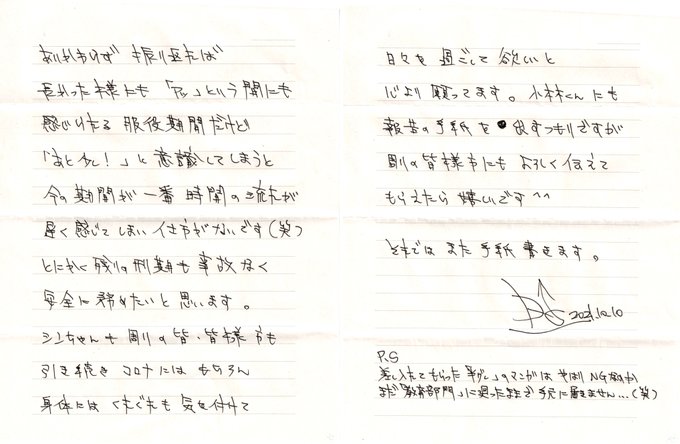 あいかわらず 振り返れば
長かった様にも 「アッ」という間にも
感じれたる 服役期間だけど
「あと少し！」と 意識してしまうと
今の期間が 一番 時間の流れが
遅く感じてしまい 仕方がないです(笑)
とにかく 残りの刑期も 事故なく
安全に 務めたいと 思います。
シンちゃんも 周りの皆・皆様方も
引き続き コロナには もちろん
身体には くれぐれも 気を付けて
日々を 過ごして 欲しいと
心より 願ってます。小林くんにも
報告の手紙を 出すつもりですが
周りの皆様方にも よろしく伝えて
もらえたら 嬉しいです^^
それでは また 手紙 書きます。
2021.10.10
P.S
差し入れてもらった 」のマンガは やはり NG
まだ「教育部門」に 手元に届きません…(笑)